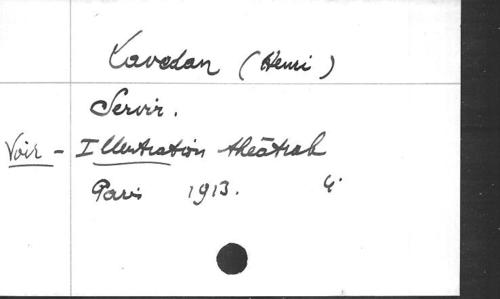 Lavedan (Henri)
Servir.
Voir - Illustration théâtrale
Paris 1913. 4°